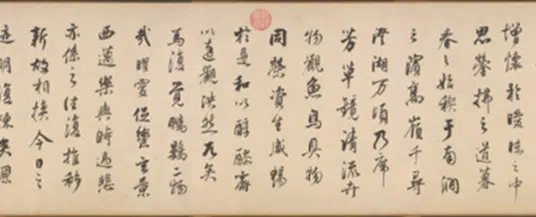 增懷於曖昧之中
思縈拂之道暮
春之始禊于南澗
之濱高嶺千尋
澄湖萬頃乃席
芳草鏡清流卉
物觀魚鳥具物
同榮資生咸暢
於是和以醇醪齊
以達觀然兀矣
焉復覺鵬鷃二物
哉曜靈促轡玄景
西邁樂與時過悲
亦係之往復推移
新故相換今日之
迹明復陳矣原